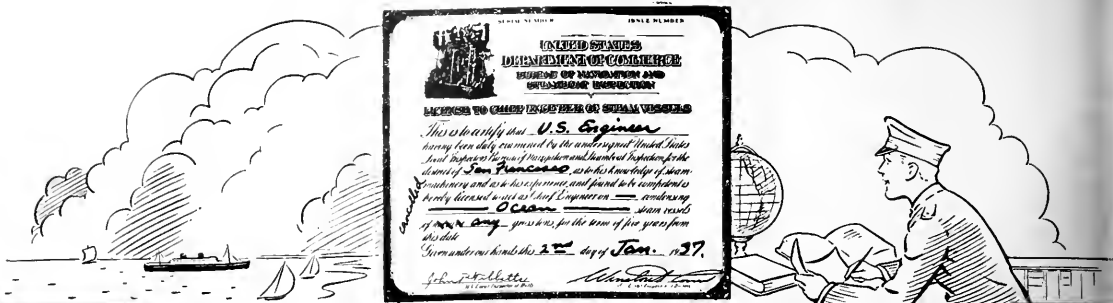 SERIAL NUMBER ISSUE NUMBER
UNITED STATES
DEPARTMENT OF COMMERCE
BUREAU OF NAVIGATION AND
STEAMBOAT INSPECTION
LICENSE TO CHIEF ENGINEER OF STEAM VESSELS
This is to certify that U.S. Engineer
having been duly examined by the undersigned United States
Local Inspectors Bureau of Navigation and Steamboat Inspection for the
district of San Francisco, as to his knowledge of steam
machinery and as to his experience, and found to be competent is
hereby licensed to act as Chief Engineer on condensing
Ocean steam vessels
of any gross tons, for the term of five years from
this date
Given under our hands this 2nd day of Jan. 1937.
cancelled
John